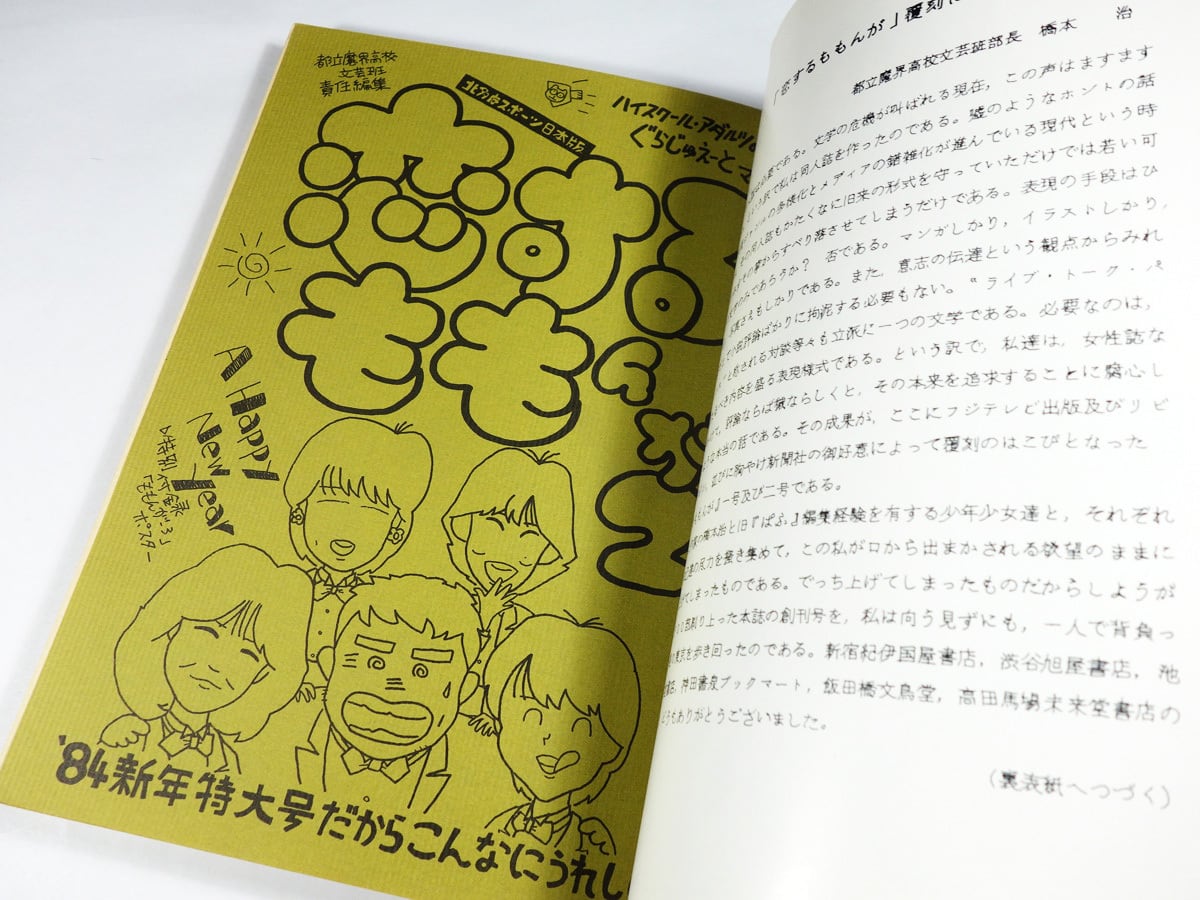 都立魔界高校
文芸班
責任編集
北多摩スポーツ日本版
ハイスクール・アダルツの
ぐらじゅえーと マ
恋する
もも
んが
2
A Happy
New Year
特別付録
「ももんが3」
ポスター
'84新年特大号だからこんなにうれし
「恋するももんが」覆刻に
都立魔界高校文芸班部長 橋本 治
である。文学の危機が叫ばれる現在，この声はますます
いう訳で私は同人誌を作ったのである。嘘のようなホントの話
の多様化とメディアの錯雑化が進んでいる現代という時
の同人誌もかたくなに旧来の形式を守っていただけでは若い可
からすべり落させてしまうだけである。表現の手段はひ
のみであろうか？ 否である。マンガしかり，イラストしかり，
さえもしかりである。また，意志の伝達という観点からみれ
評論ばかりに拘泥する必要もない。“ライブ・トーク・パ
と称される対談等々も立派に一つの文学である。必要なのは，
べき内容を盛る表現様式である。という訳で，私達は，女性誌な
評論ならば らしくと，その本来を追求することに腐心し
本当の話である。その成果が，ここにフジテレビ出版及びリビ
並びに胸やけ新聞社の御好意によって覆刻のはこびとなった
もんが』一号及び二号である。
の橋本治と旧『ぱふ』編集経験を有する少年少女達と，それぞれ
の尽力を掻き集めて，この私が口から出まかされる欲望のままに
てしまったものである。でっち上げてしまったものだからしようが
刷り上った本誌の創刊号を，私は向う見ずにも，一人で背負っ
東京を歩き回ったのである。新宿紀伊国屋書店，渋谷旭屋書店，池
店，神田書泉ブックマート，飯田橋文鳥堂，高田馬場未来堂書店の
どうもありがとうございました。
（裏表紙へつづく）